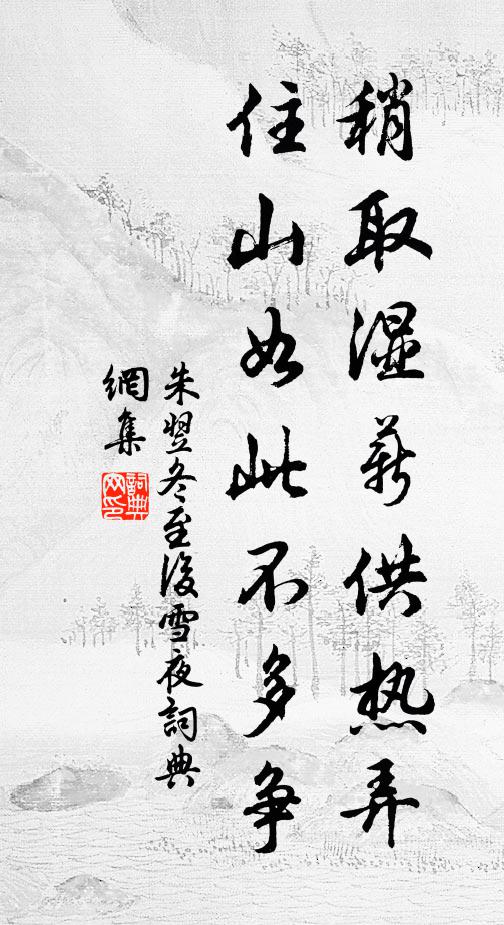 稍取湿薪供热弄
住山如此不多争
朱翌冬至後雪夜詞典
網集
詞典网印